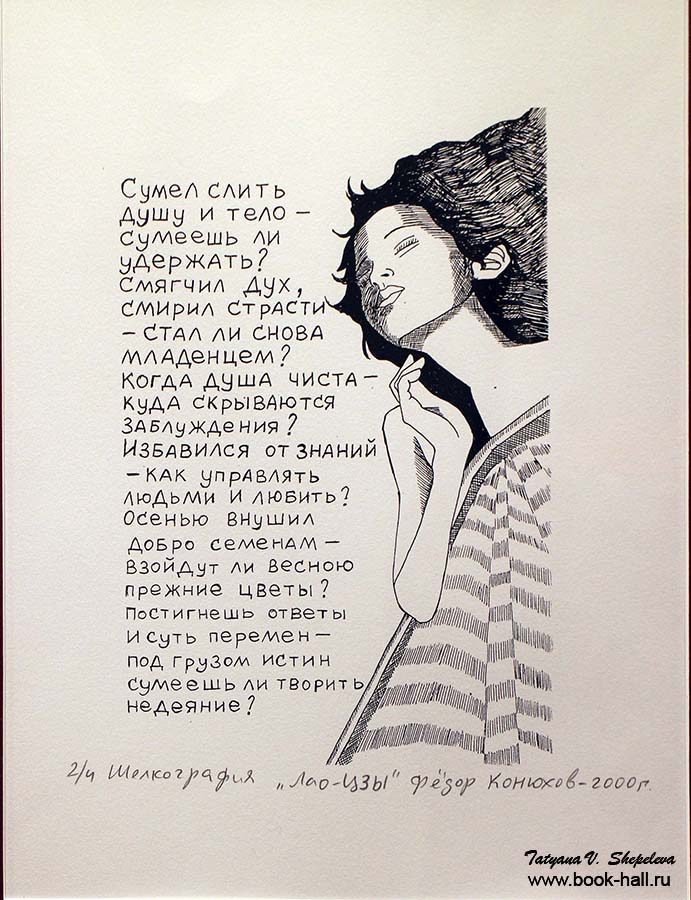 Сумел слить
душу и тело –
сумеешь ли
удержать?
Смягчил дух,
смирил страсти
– стал ли снова
младенцем?
Когда душа чиста –
куда скрываются
заблуждения?
Избавился от знаний
– как управлять
людьми и любить?
Осенью внушил
добро семенам –
взойдут ли весною
прежние цветы?
Постигнешь ответы
и суть перемен –
под грузом истин
сумеешь ли творить
недеяние?
2/ч Шелкография „Лао-Цзы" Фёдор Конюхов – 2000 г.
Tatyana V. Shepeleva
www.book-hall.ru